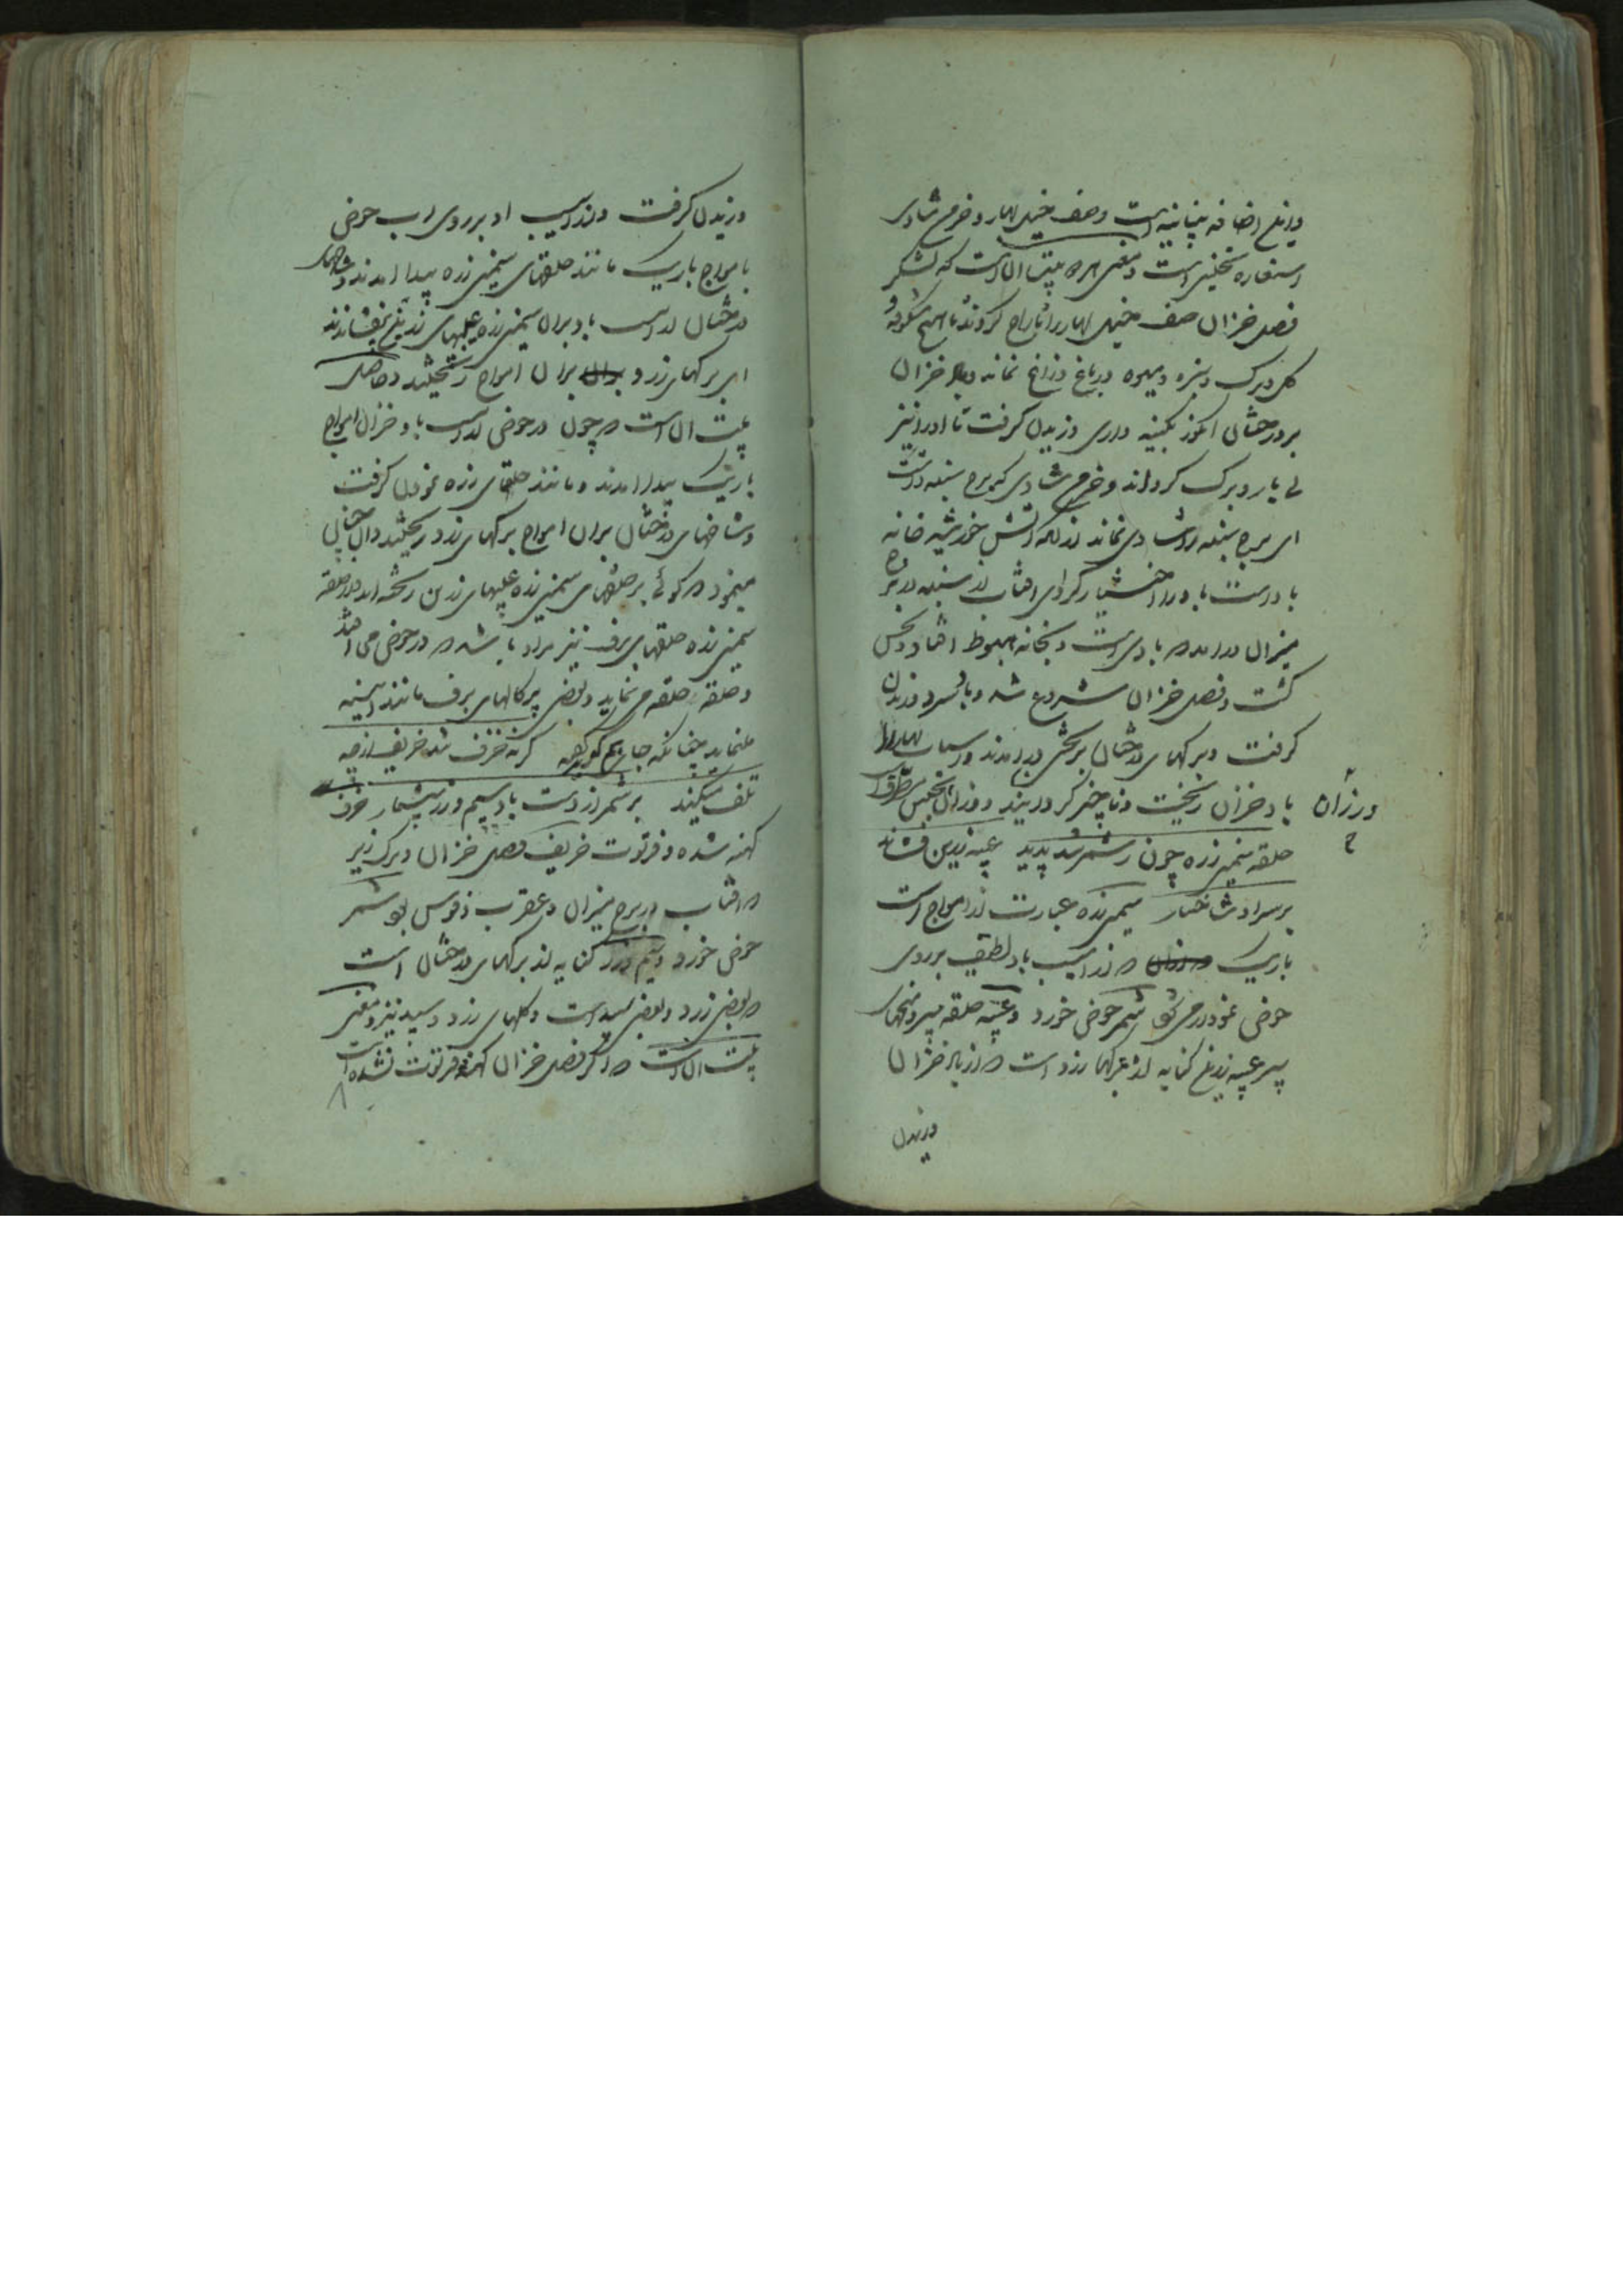 و این اضافه بیانیه است وصف خیل بهار و خرمن شادی
استعاره تخییلی است و معنی بیت آن است که لشکر
فصل خزان صف خیل بهار را تاراج کردند تا هیچ شکوفه و
گل و برگ و سبزه و میوه در باغ و زاغ نماند و باد خزان
بر درختان وزیدن گرفت تا او را نیز
بی بار و برگ کرداند و خرمن شادی که برج سنبله داشت
ای برج سنبله را شادی نماند از آنکه آتش خورشید خانه
باد است باد را اختیار کرد ای آفتاب از سنبله در برج
میزان درآمد که بادی است و بخانه هبوط افتاد و نحس
گشت و فصل خزان شروع شد و باد سرد وزیدن
گرفت و برگهای درختان بریختن درآمدند و اسباب بهار را
باد خزان ریخت و ناچیز کردانیدند
وز زان
ح
حلقه سیمین زره چون ز شمر شد پدید عیبه زرین فشاند
بر سر او شاخسار سیمین زره عبارت از امواج است
باریک که از آسیب باد لطیف بر روی
حوض نمودار می شود شمر حوض خورد و عیبه حلقه
سپر عیبه زرین کنایه از برگهای زرد است که از باد خزان
وزیدن
وزیدن گرفت و از آسیب او بر روی آب حوض
امواج باریک مانند حلقهای سیمین زره پیدا آمدند و شاخهای
درختان از آسیب باد بر آن سیمین زره عیبهای زرین بفشاندند
ای برگهای زرد بر آن امواج ریختند و حاصل
بیت آن است که چون در حوض از آسیب باد خزان امواج
باریک پیدا آمدند و مانند حلقهای زره نمودن گرفت
و شاخهای درختان بر آن امواج برگهای زرد ریختند و آن چنان
مینمود که گوئی بر حلقهای سیمین زره عیبهای زرین ریخته اند و از حلقه
سیمین زره حلقهای برف نیز مراد باشد که در حوض می افتد
و حلقه حلقه می نماید و بعضی پرکالهای برف مانند آیینه
مینماید چنانکه جای هم گوید گر نه خرف شد خریف از چه
تلف میکند بر شمر از دست باد سیم و زر بیشمار خرف
کهنه شده و فرتوت خریف فصل خزان و برگ ریز
که آفتاب در برج میزان و عقرب و قوس بود شمر
حوض خورد و سیم و زر کنایه از برگهای درختان است
که بعضی زرد و بعضی سپید است و گلهای زرد و سپید نیز و معنی
بیت آن است که اگر فصل خزان کهنه و فرتوت نشده است